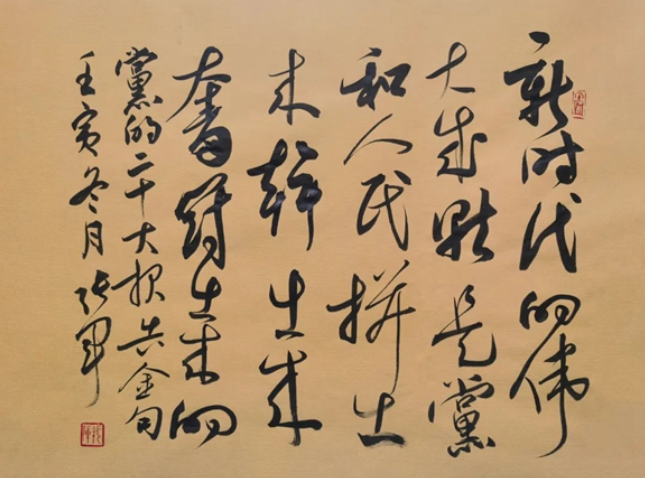 新时代的伟
大成就是黨
和人民拼出
来幹出来
奮鬥出来的
黨的二十大报告金句
壬寅冬月 张军